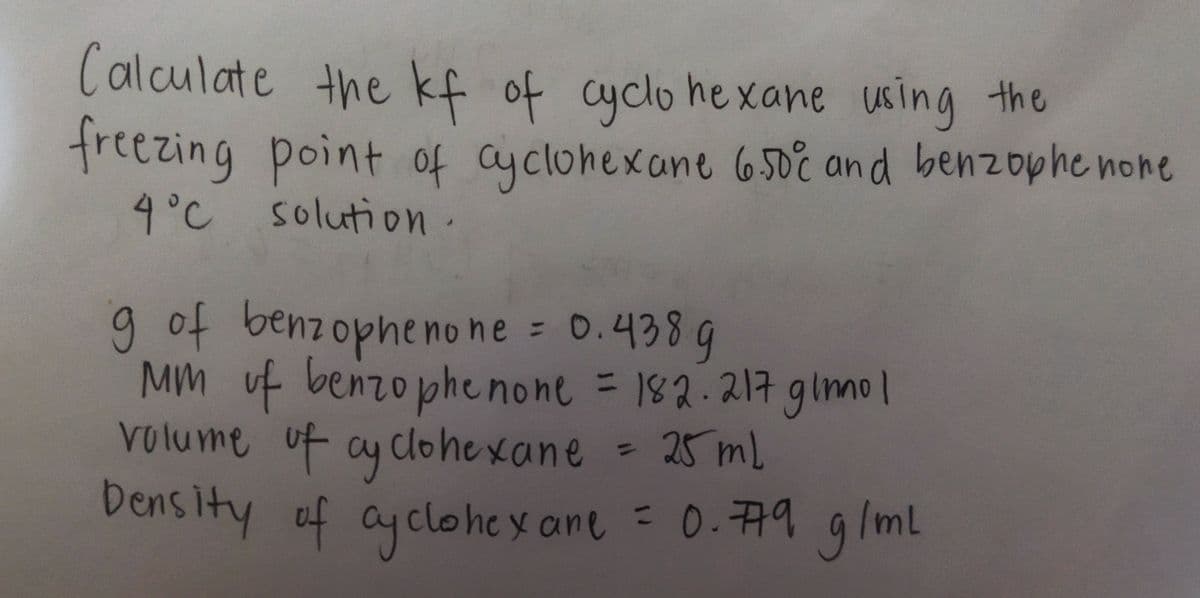 Calculate the kf of cyclohexane using the
freezing point of cyclohexane 6.50°C and benzophenone
4°C solution.
g of benzophenone = 0.438 g
MM of benzophenone = 182.217 g/mol
volume of cyclohexane = 25 mL
Density of cyclohexane = 0.779 g/mL